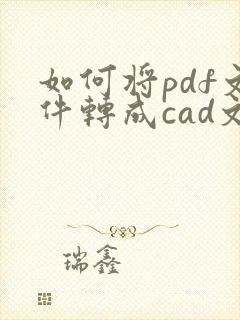 如何将pdf文
件轉成cad文
瑞鑫